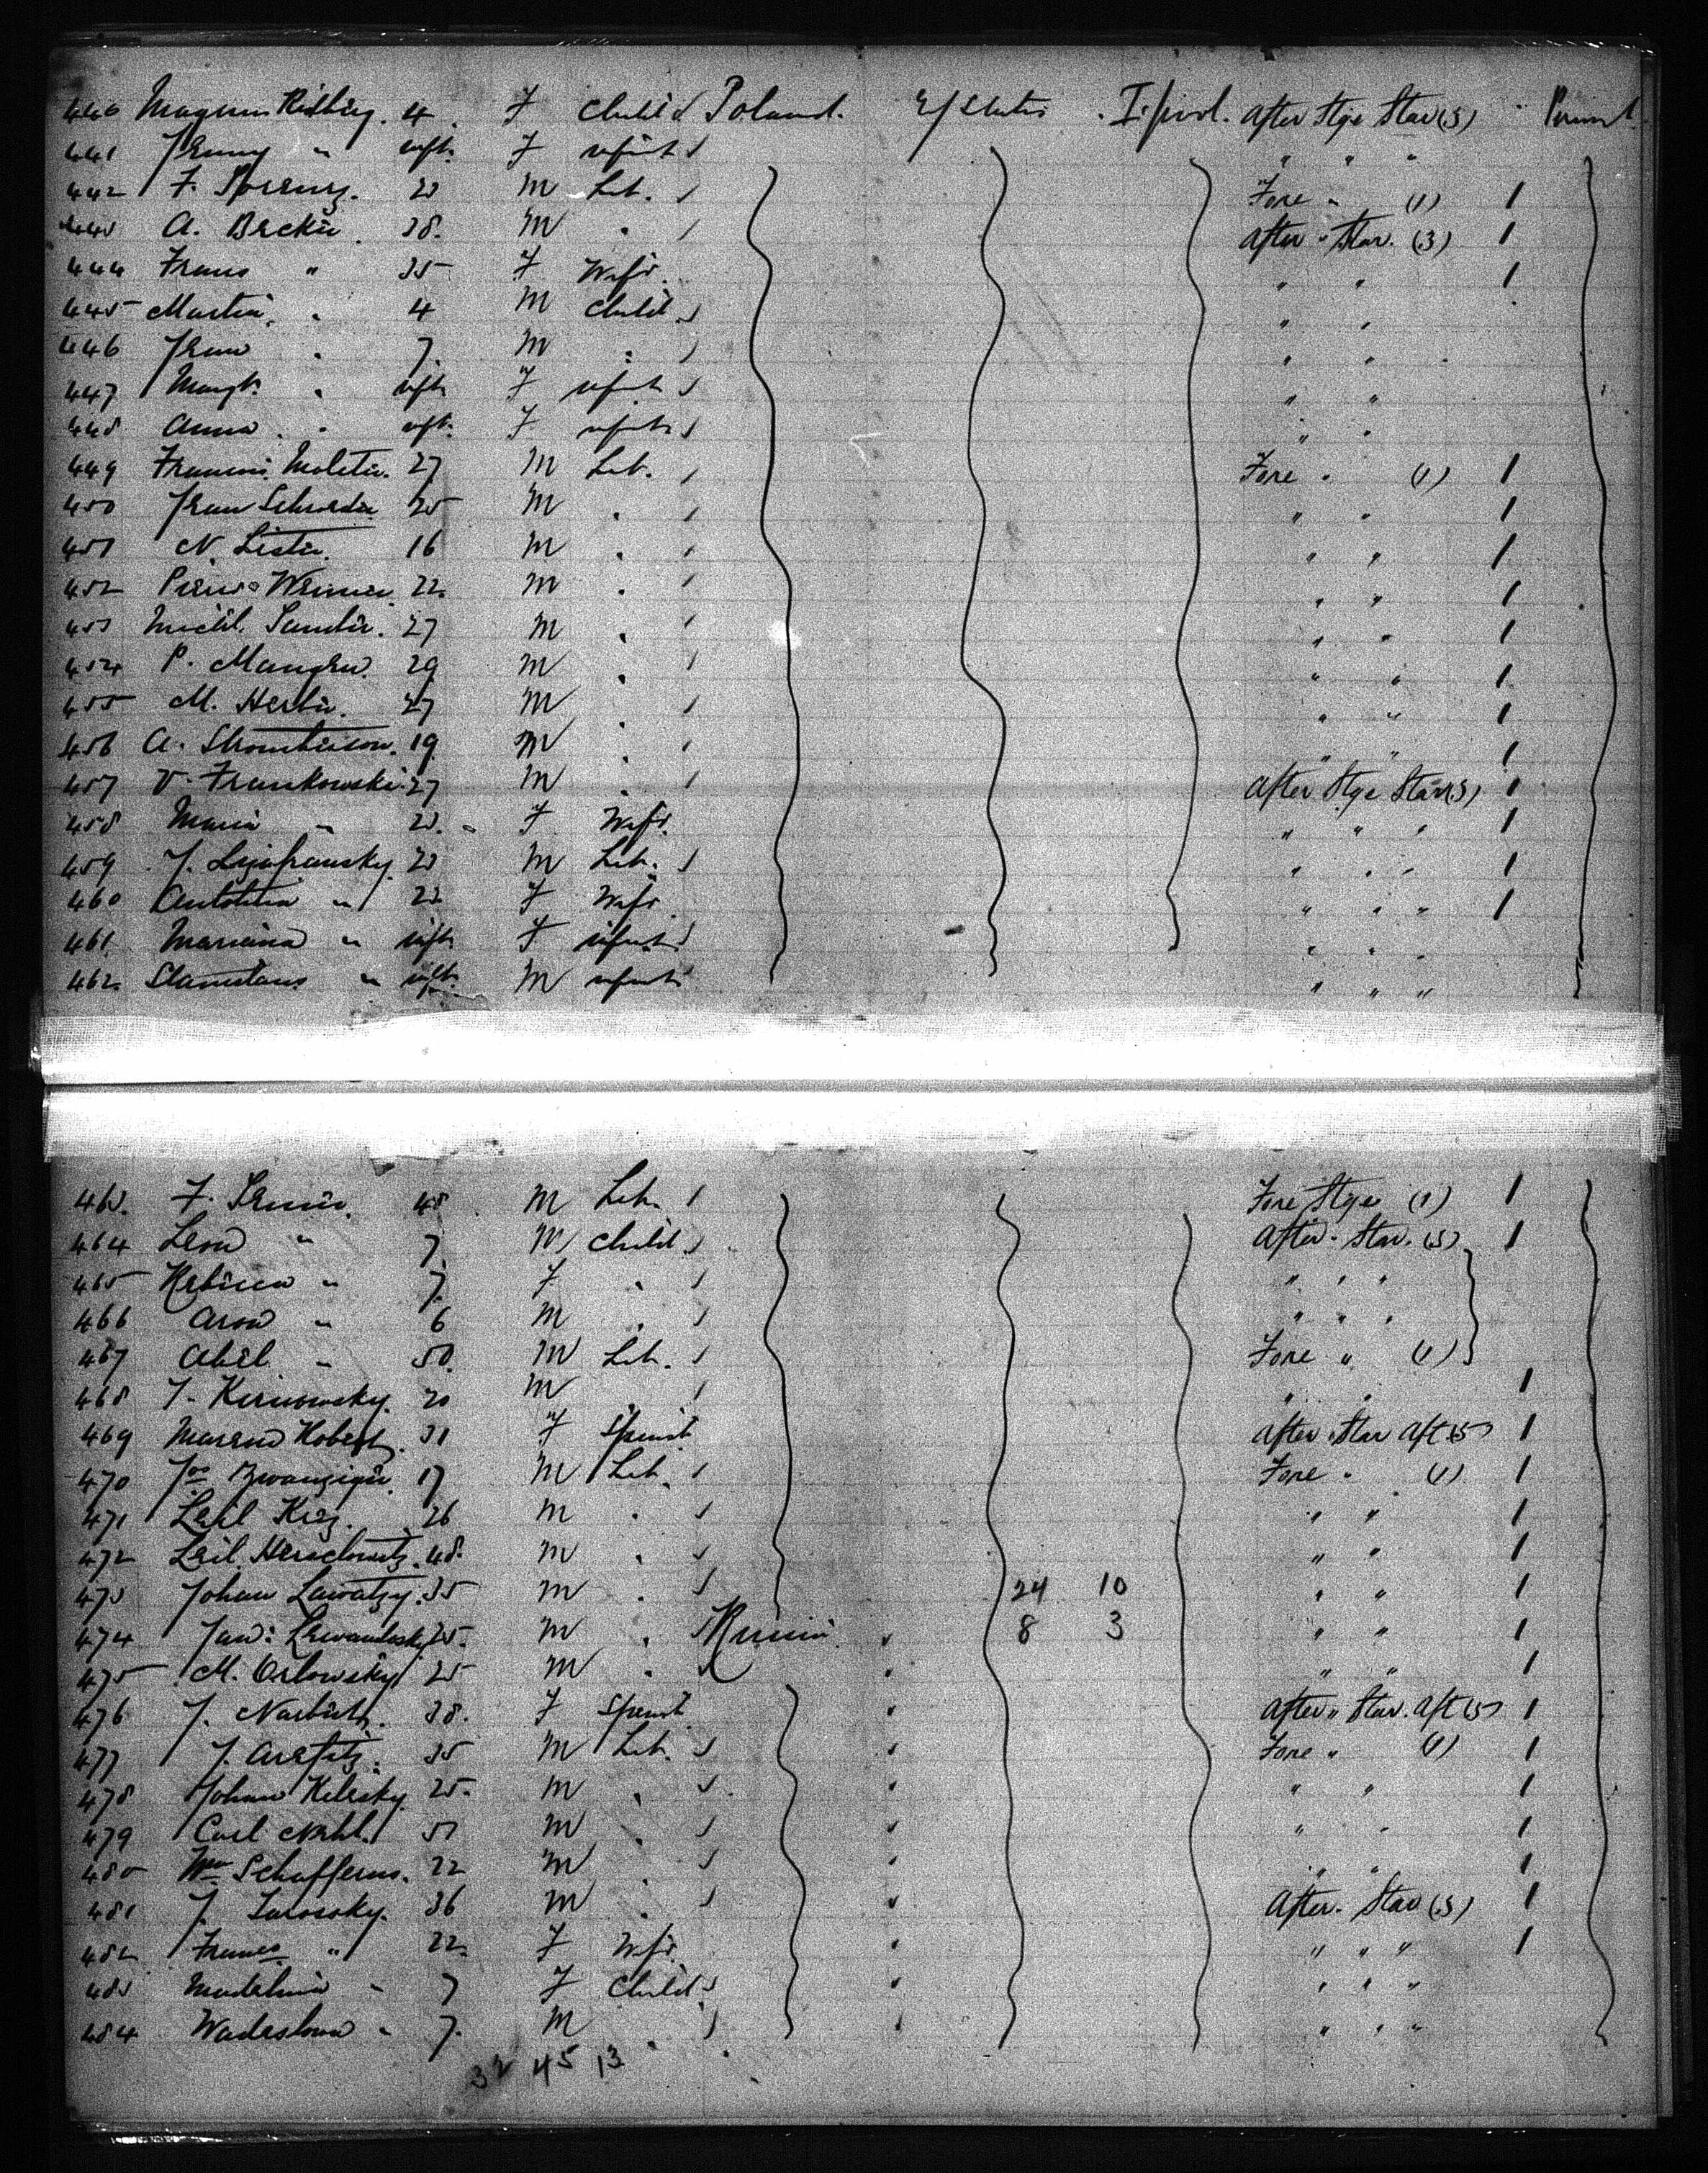 440 Magnus Risbig. 4. F Child Poland. U/States I/pool. After Stge Star (3) " Permt
441 Jenny " inft. F infant " " "
442 F. 23 M Lab. Fore " (1) 1
443 A. Becker. 38. M " After " Star. (3) 1
444 Frans " 35 F Wife " " 1
445 Martin. " 4 M Child. " "
446 Jean " 7. M " " "
447 Margt. " inft F infant " "
448 Anna. " inft. F infant " "
449 Molitr. 27 M Lab. Fore " (1) 1
450 Jean Schroeder 25 M " " " 1
451 N. Lester. 16 M " " " 1
452 Pierre Wernier. 22. M " " " 1
453 Michl. Sander. 27 M " " " 1
454 P. Mangen. 29 M " " " 1
455 M. Herber. 27 M " " " 1
456 A. 19 M " " " 1
457 V. Frankowski. 27 M " After Stge Star (3) 1
458 Maria " 23. " F Wife. " " " 1
459 J. 23 M Lab. " " " 1
460 " 22 F Wife " " " 1
461. Mariana " inft F infant " " "
462. Stanislaus " inft. M infant " " "
463. F. 48 M Lab. Fore Stge (1) 1
464 Leon " 7. M Child. After " Star. (3) 1
465 Rebecca " 7. F " " " "
466 Aron " 6 M " " " "
467 Abel " 50. M Lab. Fore " (1)
468 J. 20 M " " 1
469 Maren Hobert. 31 F Spinst. After " Star Aft (5) 1
470 Jos Zwanziger. 17 M Lab. Fore " (1) 1
471 Leib 26 M " " " 1
472 Leib. Herschowitz. 48. M " " " 1
473 Johan Lawatzy. 35 M " 24 10 " " 1
474 Jan: Lewandosky 25. M " Russia. " 8 3 " " 1
475 M. Orlowsky 25 M " " " " 1
476 J. Narbuth. 38. F Spinst " After " Star. Aft (5) 1
477 J. 35 M Lab. " Fore " (1) 1
478 Johan Kelesky. 25. M " " " " 1
479 Carl 51 M " " " " 1
480 Wm Schafferus. 22 M " " " " 1
481 J. 36 M " " After " Star (3) 1
482 Frances " 22. F Wife. " " " " 1
483 Madelina " 7 F Child " " " "
484 Wadeslowa " 7. M " " " " "
32 45 13